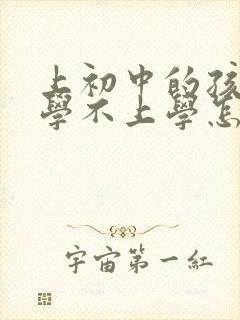 上初中的孩
學不上學怎
宇宙第一紅